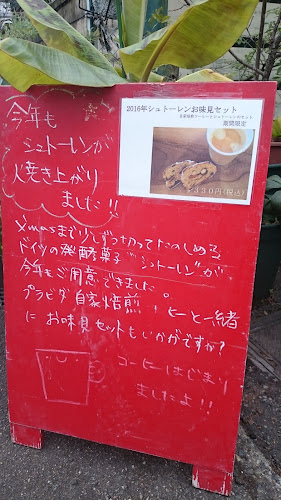 今年も
シュトーレンが
焼き上がり
ました!!
2016年シュトーレンお味見セット
自家焙煎コーヒーとシュトーレンのセット
期間限定
330円(税込)
Xmasまで少しずつ切ってたのしめる
ドイツの発酵菓子"シュトーレン"が
今年もご用意できました。
プラビダ自家焙煎コーヒーと一緒
に お味見セットもいかがですか?
コーヒーはじまり
ましたよ!!